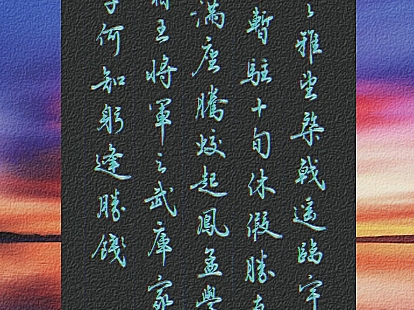 雅望棨戟遥臨宇
暫駐十旬休假勝
滿座騰蛟起鳳孟學
王將軍之武庫家
何知躬逢勝餞